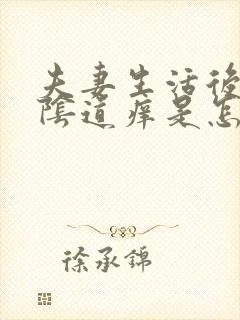 夫妻生活後
陰道痒是怎
徐承錦